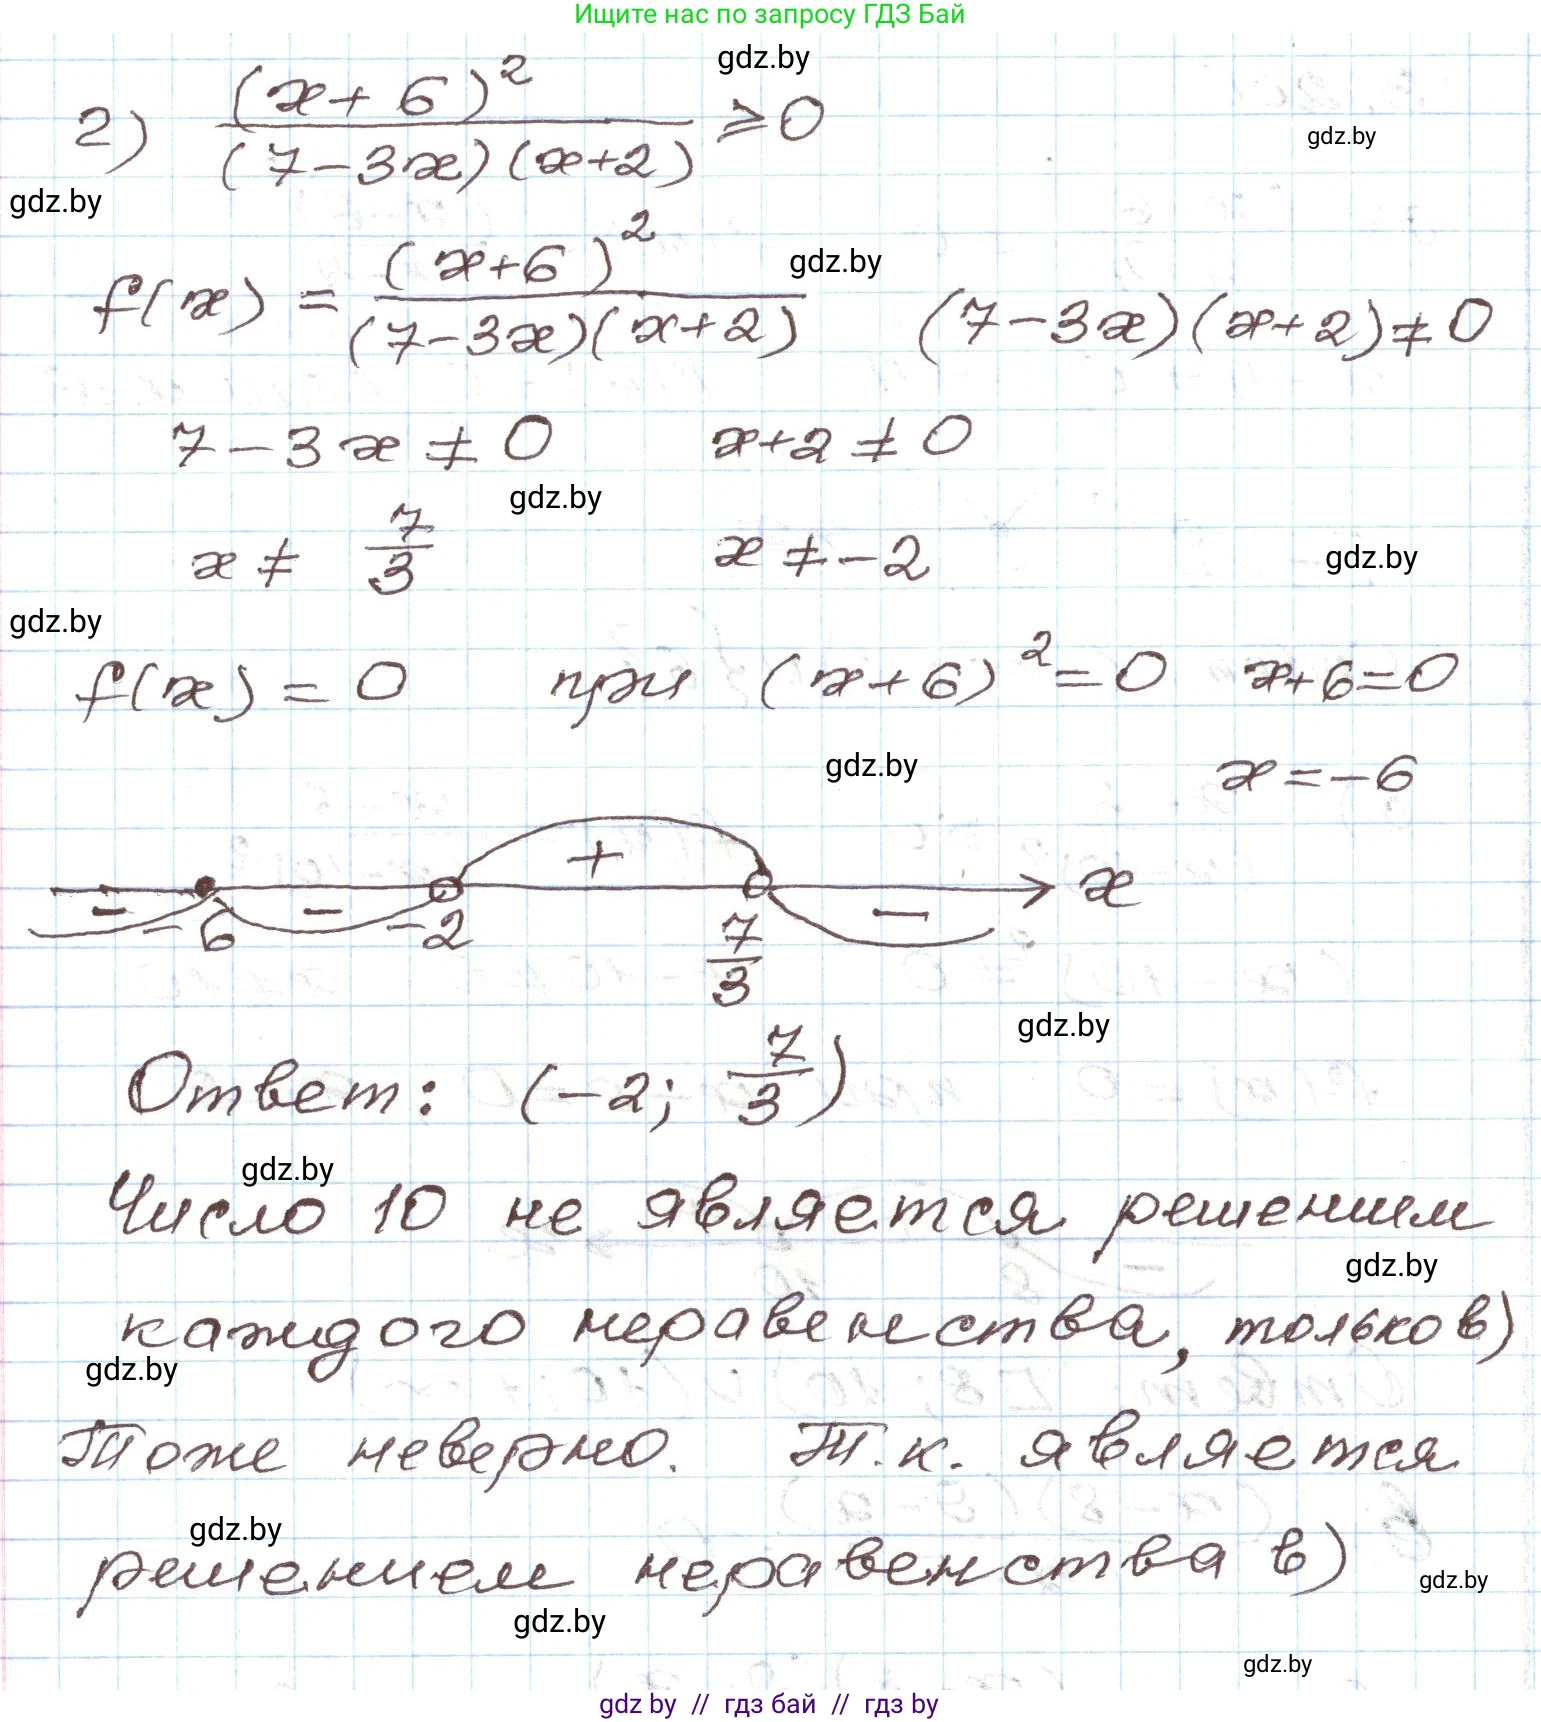 Ищите нас по запросу ГДЗ Бай
gdz.by
2) (x+6)² / (7-3x)(x+2) ⩾ 0
gdz.by
gdz.by
f(x) = (x+6)² / (7-3x)(x+2) (7-3x)(x+2) ≠ 0
gdz.by
7-3x ≠ 0 x+2 ≠ 0
gdz.by
x ≠ 7/3 x ≠ -2
gdz.by
gdz.by
f(x) = 0 при (x+6)² = 0 x+6=0
gdz.by
x = -6
- - + - x
-6 -2 7/3
gdz.by
Ответ: (-2; 7/3)
gdz.by
Число 10 не является решением
gdz.by
каждого неравенства, только в)
gdz.by
Тоже неверно. Т.к. является
gdz.by
решением неравенства в)
gdz.by
gdz.by
gdz.by
gdz by // гдз бай // гдз by